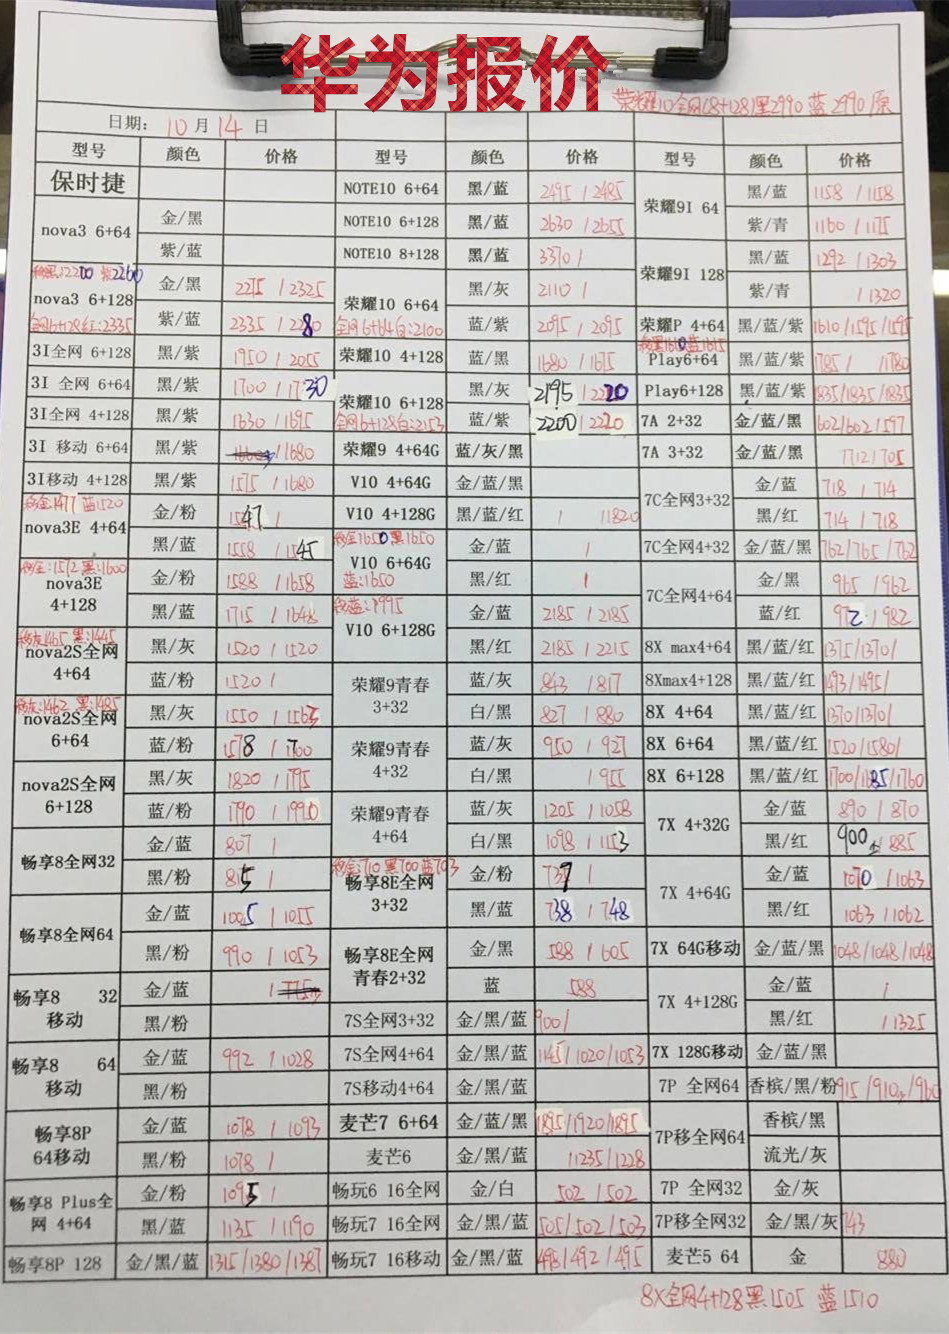 华为报价
荣耀10全网(8+128)黑2990 蓝2990/原
日期: 10月14日
型号 颜色 价格 型号 颜色 价格 型号 颜色 价格
保时捷 NOTE10 6+64 黑/蓝 2495 / 2485 荣耀9I 64 黑/蓝 1158 / 1158
nova3 6+64 金/黑 NOTE10 6+128 黑/蓝 2630 / 2655 紫/青 1160 / 1175
紫/蓝 NOTE10 8+128 黑/蓝 3370 / 荣耀9I 128 黑/蓝 1292 / 1303
nova3 6+128 金/黑 2275 / 2325 荣耀10 6+64 黑/灰 2110 / 紫/青 / 1320
全网6+128红:2335 紫/蓝 2335 / 2280 全网6+64白:2100 蓝/紫 2095 / 2095 荣耀P 4+64 黑/蓝/紫 1610/1595/1595
3I全网 6+128 黑/紫 1950 / 2055 荣耀10 4+128 蓝/黑 1680 / 1675 Play6+64 黑/蓝/紫 1785 / / 1780
3I 全网 6+64 黑/紫 1700 / 1730 荣耀10 6+128 黑/灰 2195 / 2220 Play6+128 黑/蓝/紫 1835/1835/1835
3I全网 4+128 黑/紫 1630 / 1695 全网6+128白:2153 蓝/紫 2200 / 2220 7A 2+32 金/蓝/黑 602/602/597
3I 移动 6+64 黑/紫 / 1680 荣耀9 4+64G 蓝/灰/黑 7A 3+32 金/蓝/黑 712 / 705
3I移动 4+128 黑/紫 1575 / 1680 V10 4+64G 金/蓝/黑 7C全网3+32 金/蓝 718 / 714
移金:1477 蓝1520
nova3E 4+64 金/粉 1547 / V10 4+128G 黑/蓝/红 / / 1820 黑/红 714 / 718
黑/蓝 1558 / 1545 移金1650黑1650 V10 6+64G 蓝:1650 金/蓝 / 7C全网4+32 金/蓝/黑 762/765/762
移金:1572 黑:1600
nova3E 4+128 金/粉 1588 / 1658 黑/红 / 7C全网4+64 金/黑 965 / 962
黑/蓝 1715 / 1648 V10 6+128G 金/蓝 2185 / 2185 蓝/红 972 / 982
移灰1465 黑:1445
nova2S全网 4+64 黑/灰 1520 / 1520 黑/红 2185 / 2215 8X max4+64 黑/蓝/红 1375/1370/
蓝/粉 1520 / 荣耀9青春 3+32 蓝/灰 843 / 817 8Xmax4+128 黑/蓝/红 1493/1495/
移灰:1462 黑:1485
nova2S全网 6+64 黑/灰 1550 / 1563 白/黑 827 / 880 8X 4+64 黑/蓝/红 1370/1370/
蓝/粉 1578 / 1700 荣耀9青春 4+32 蓝/灰 950 / 927 8X 6+64 黑/蓝/红 1520/1580/
nova2S全网 6+128 黑/灰 1820 / 1795 白/黑 / 955 8X 6+128 黑/蓝/红 1700/1685/1760
蓝/粉 1790 / 1990 荣耀9青春 4+64 蓝/灰 1205 / 1058 7X 4+32G 金/蓝 890 / 870
畅享8全网32 金/蓝 807 / 白/黑 1098 / 1153 黑/红 900 / 885
移金:710 黑700 蓝703
黑/粉 815 / 畅享8E全网 3+32 金/粉 737 / 7X 4+64G 金/蓝 1070 / 1063
畅享8全网64 金/蓝 1005 / 1055 黑/蓝 738 / 748 黑/红 1063 / 1062
黑/粉 990 / 1053 畅享8E全网 青春2+32 金/黑 588 / 605 7X 64G移动 金/蓝/黑 1048/1048/1048
畅享8 32 移动 金/蓝 / 蓝 588 7X 4+128G 金/蓝 /
黑/粉 7S全网3+32 金/黑/蓝 900/ 黑/红 / 1325
畅享8 64 移动 金/蓝 992 / 1028 7S全网4+64 金/黑/蓝 1145/1020/1053 7X 128G移动 金/蓝/黑
黑/粉 7S移动4+64 金/黑/蓝 7P 全网64 香槟/黑/粉 915/910/960
畅享8P 64移动 金/蓝 1078 / 1093 麦芒7 6+64 金/蓝/黑 1895/1920/1895 7P移全网64 香槟/黑
黑/粉 1078 / 麦芒6 金/黑/蓝 /1235/1228 流光/灰
畅享8 Plus全网 4+64 金/粉 1095 / 畅玩6 16全网 金/白 502 / 502 7P 全网32 金/灰
黑/蓝 1135 / 1190 畅玩7 16全网 金/黑/蓝 505/502/503 7P移全网32 金/黑/灰 743
畅享8P 128 金/黑/蓝 1315/1380/1387 畅玩7 16移动 金/黑/蓝 498/492/495 麦芒5 64 金 880
8X全网4+128黑1505 蓝1510